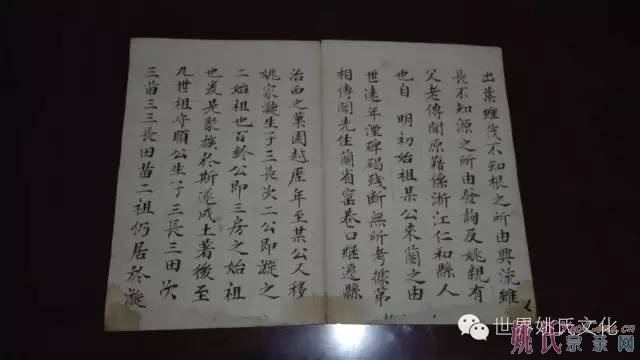 出葉雖茂不知根之所由興流雖
長不知源之所由發詢及姚親有
父老傳聞原籍係浙江仁和縣人
也自 明初始祖某公來蘭之由
世遠年湮碑碣残断無所考據第
相傳聞先住蘭省窰巷口繼遷縣
治西之菓園越歷年至某公又移
姚家漩生子三長次二公即漩之
二始祖也百齡公即三房之始祖
也爰是聚族於斯遂成土著後至
九世祖守順公生子三長三田次
三苗三三長田苗二祖仍居於漩
世界姚氏文化
姚氏宗亲网